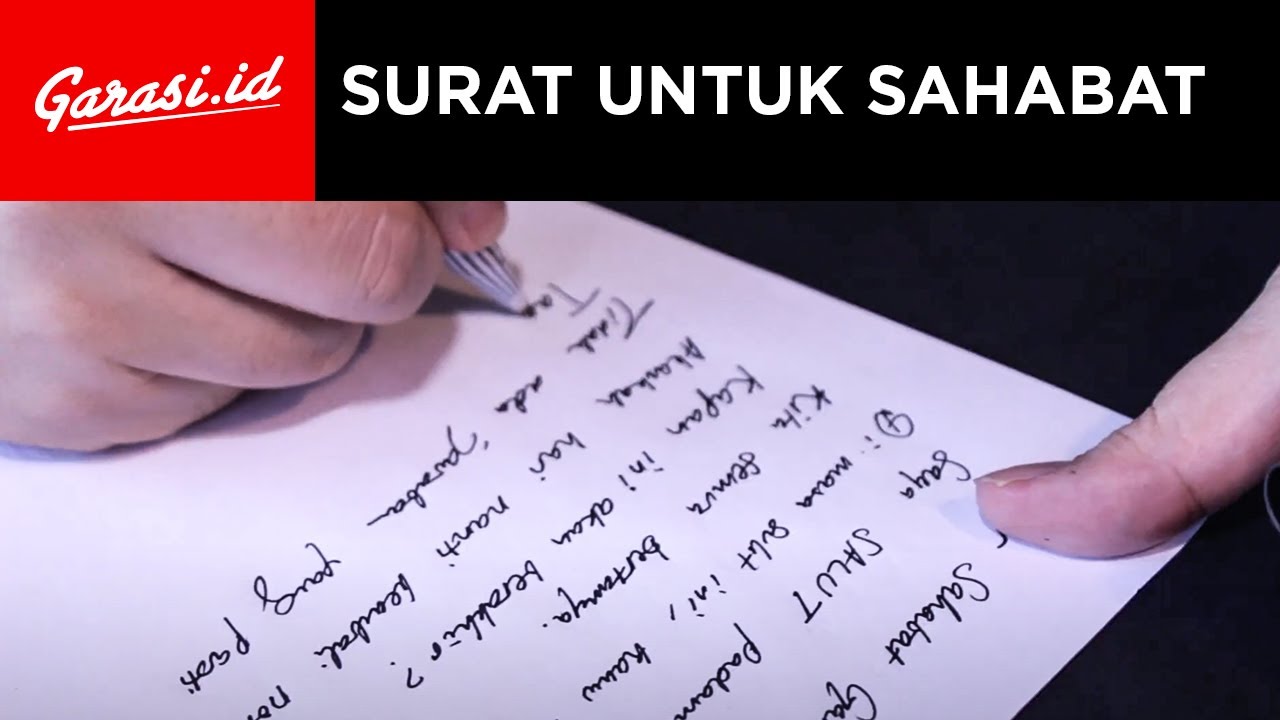 Garasi.id
SURAT UNTUK SAHABAT
Sahabat Ga
Saya SALUT padam
Di masa sulit ini, kamu
Kita semua bertanya.
Kapan ini akan berakhir?
Akankah hari nanti kembali nor
Tidak ada jawaban yang pasti